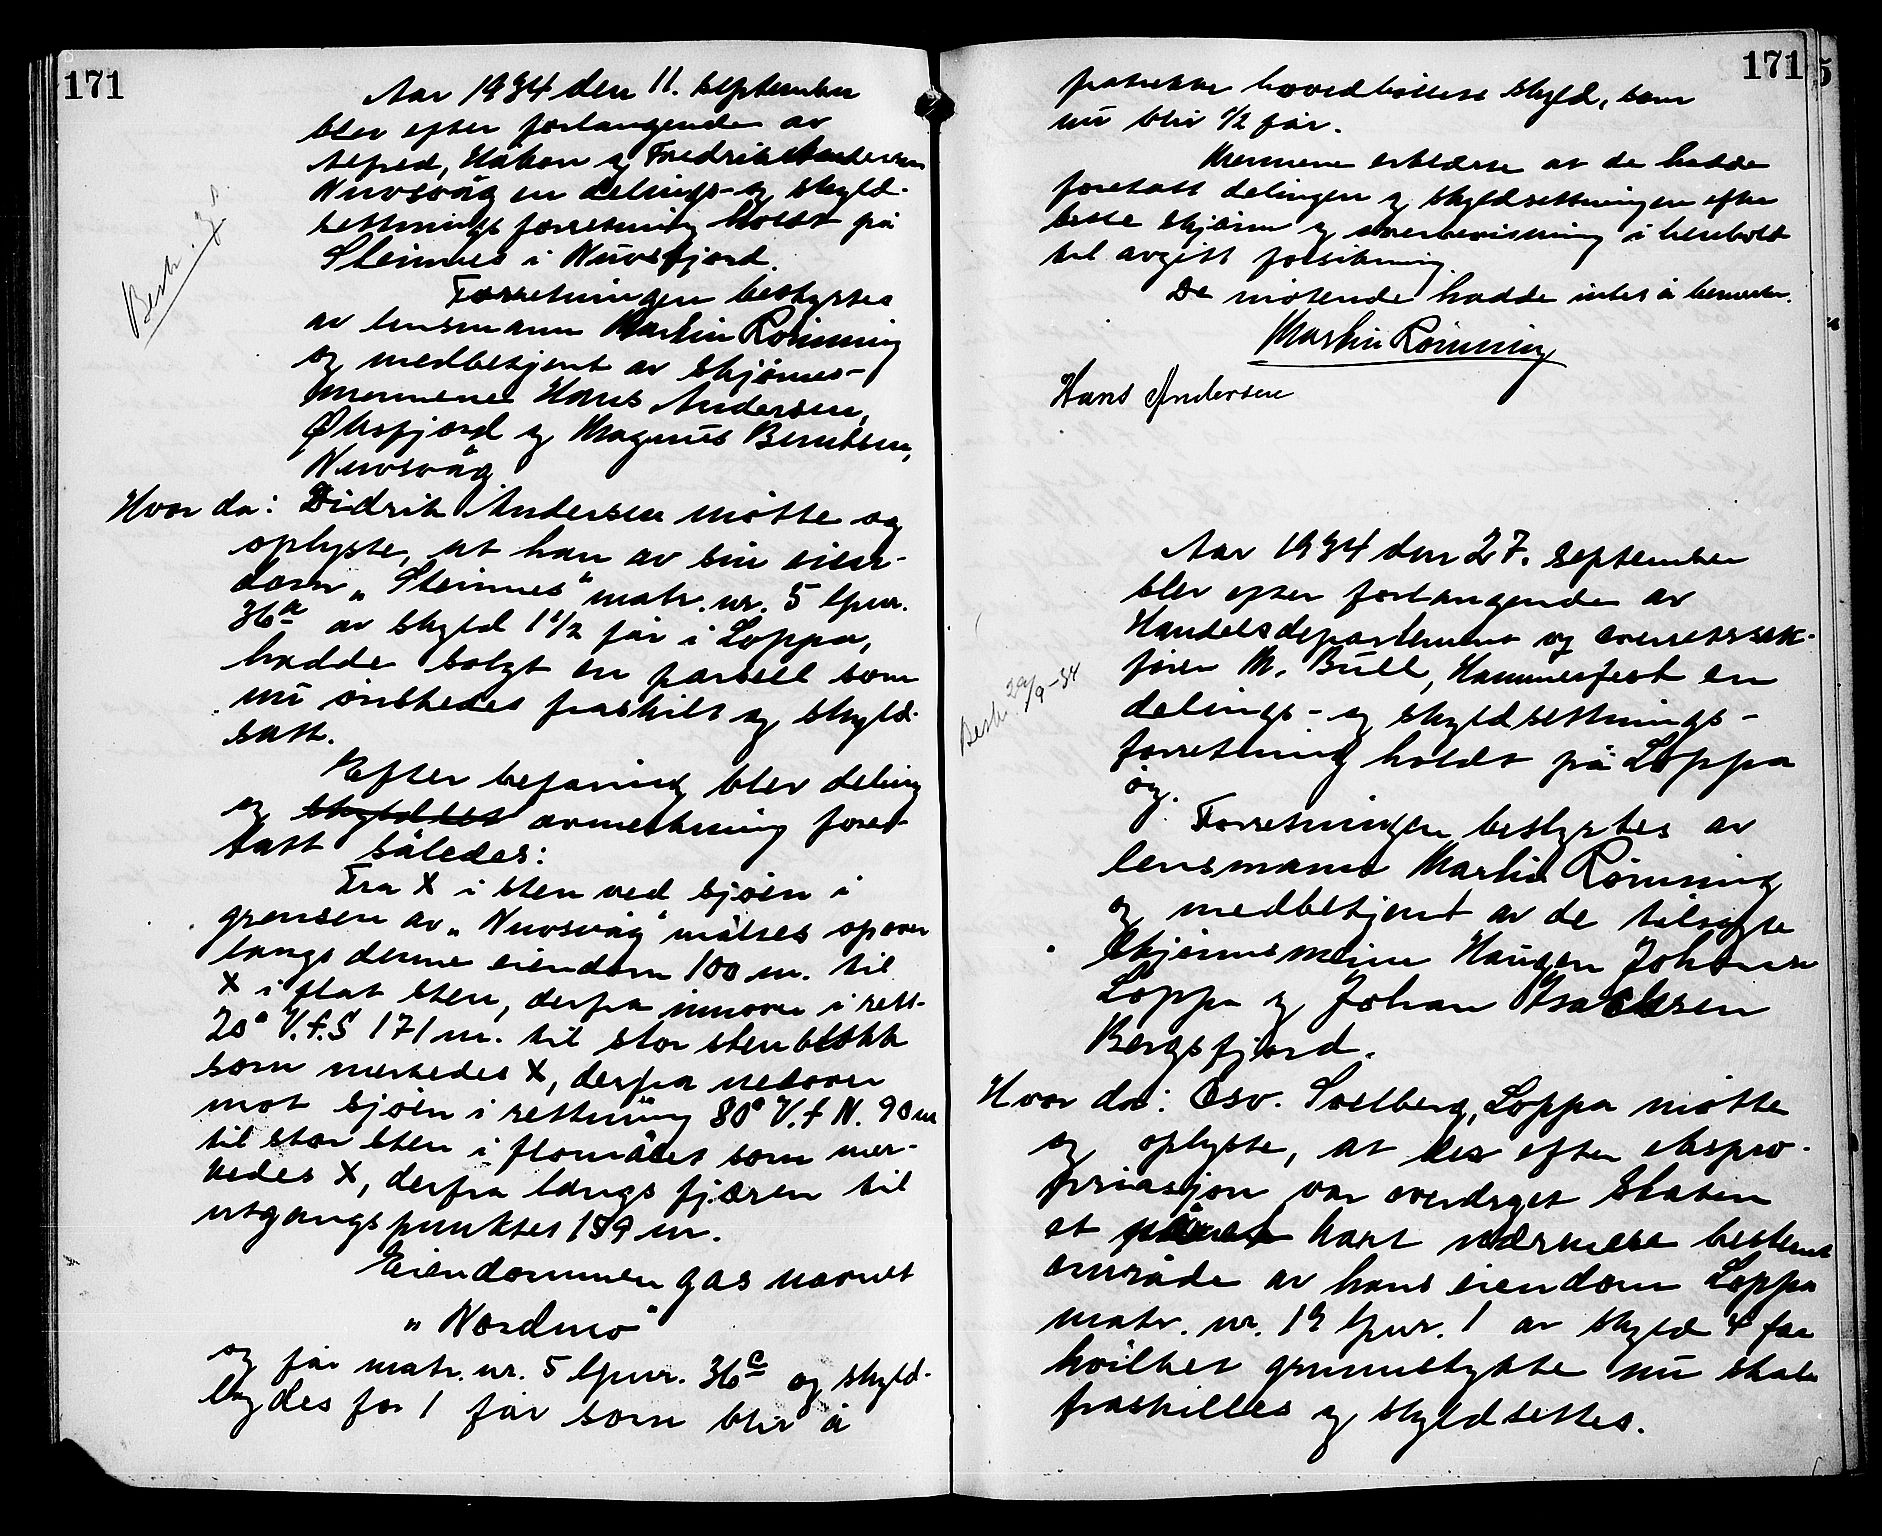 171
Aar 1934 den 11. september
blev efter forlangende av
Alfred, Håkon og Fredrik Andersen
Nuvsvåg en delings- og skyld-
settnings forretning holdt på
Steinnes i Nuvsfjord.
Forretningen bestyrtes
av lensmann Martin Rømming
og medbetjent av skjønns-
mennene Hans Andersen,
Øksfjord og Magnus Berntsen,
Nuvsvåg
Hvor da: Didrik Andersen møtte og
oplyste, at han av sin eien-
dom "Steinnes" matr. nr. 5 lpnr.
36a av skyld 1 1/2 før i Loppa,
hadde solgt en parsell som
nu ønskedes fraskilt og skyld-
satt.
Efter befaring blev deling
og avmerkning fore-
tatt således:
Fra X i sten ved sjøen i
grensen av "Nuvsvåg" måltes opover
langs denne eiendom 100 m. til
X i flat sten, derfra innover i rett.
20° V.f.S 171 m. til stor stenblokk
som merkedes X, derfra nedover
mot sjøen i rettning 80° V.f N. 90 m
til stor sten i flomålet som mer-
kedes X, derfra langs fjæren til
utgangspunktet 159 m.
Eiendommen gas navnet
"Nordmo"
og får matr. nr. 5 lpnr. 36c og skyld-
lagdes for 1 før som blir å
171
fratrekke hovedbølets skyld, som
nu blir 1/2 før.
Mennene erklærte at de hadde
foretatt delingen og skyldsettningen efter
beste skjønn og overbevisning i henhold
til avgitt forsikring.
De møtende hadde intet å bemerke.
Martin Rømming
Hans Andersen
Bert. 29/9-34
Aar 1934 den 27. september
blev efter forlangende av
Handelsdepartement og overrettssak-
fører M. Bull, Hammerfest en
delings- og skyldsettnings-
forretning holdt på Loppa
øy.
Forretningen bestyrtes av
lensmann Martin Rømming
og medbetjent av de tilsagte
skjønnsmenn Haugen Johansen
Loppa og Johan Isaksen
Bergsfjord.
Hvor da: Osv. Solberg, Loppa møtte
og oplyste, at der efter ekspro-
priasjon var overdraget Staten
et kart nærmere bestemt
område av hans eiendom Loppa
matr. nr. 19 lpnr. 1 av skyld 4 før
hvilket grunnstykke nu skal
fraskilles og skyldsettes.